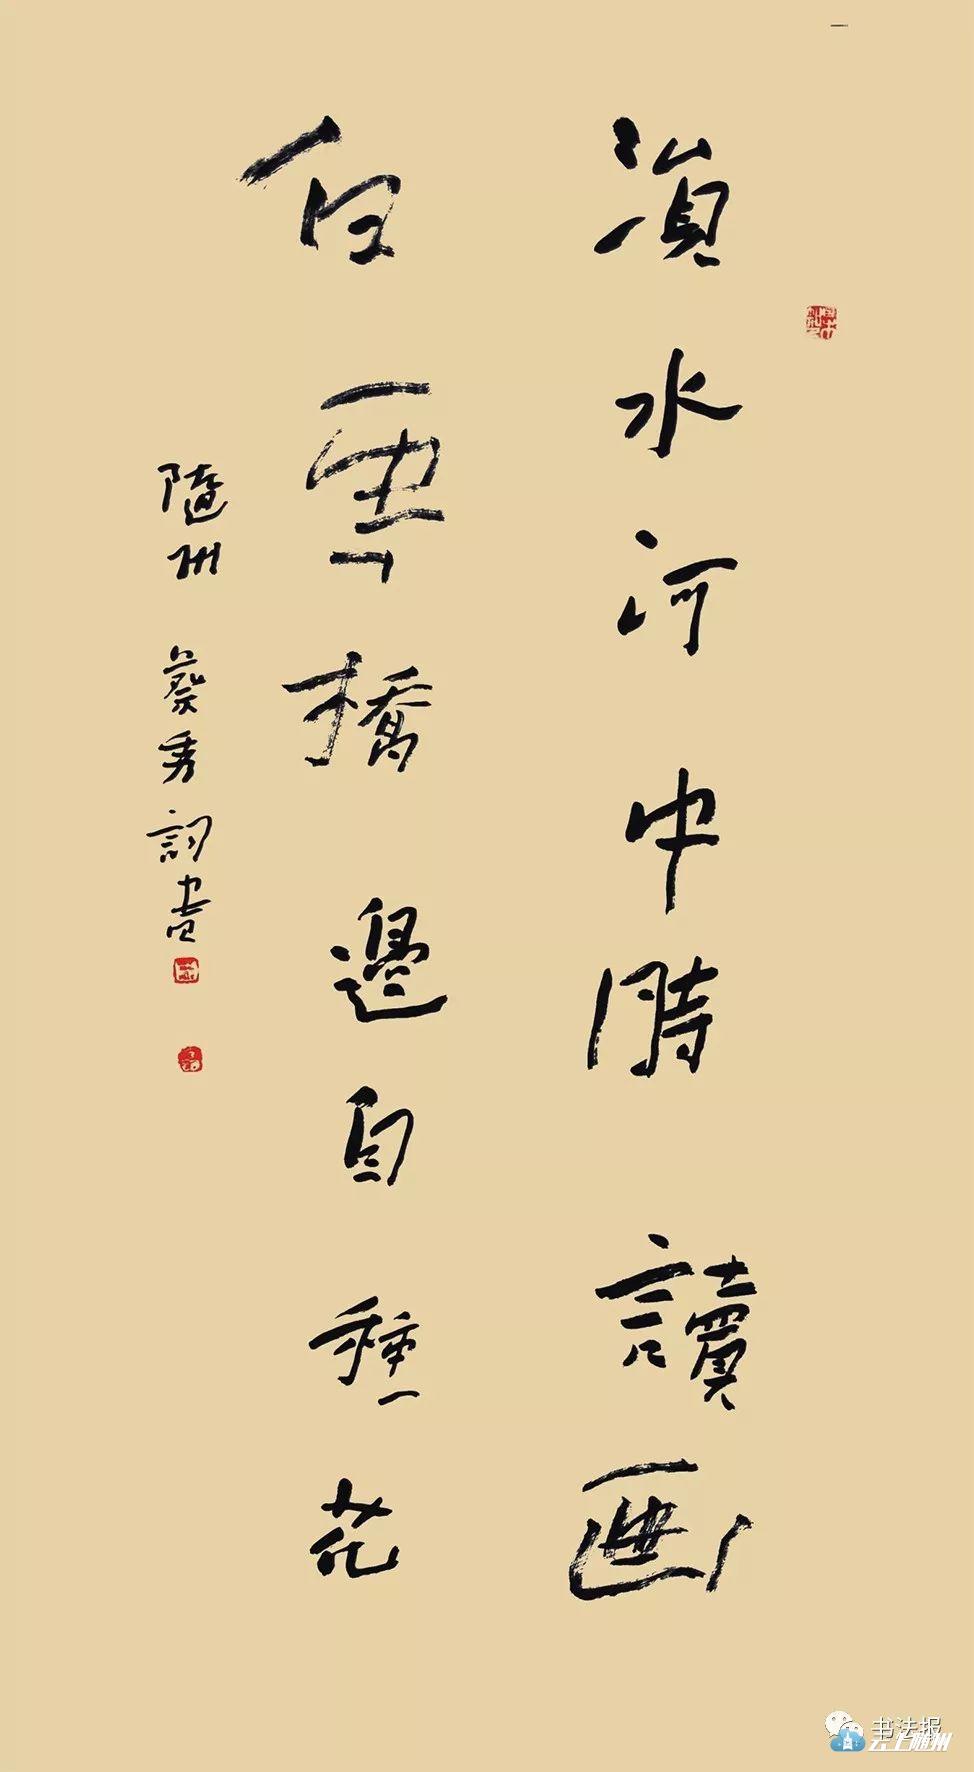 溳水河中時讀画
白雲橋邊自種花
隨州 蔡秀詞書
书法报
云上随州